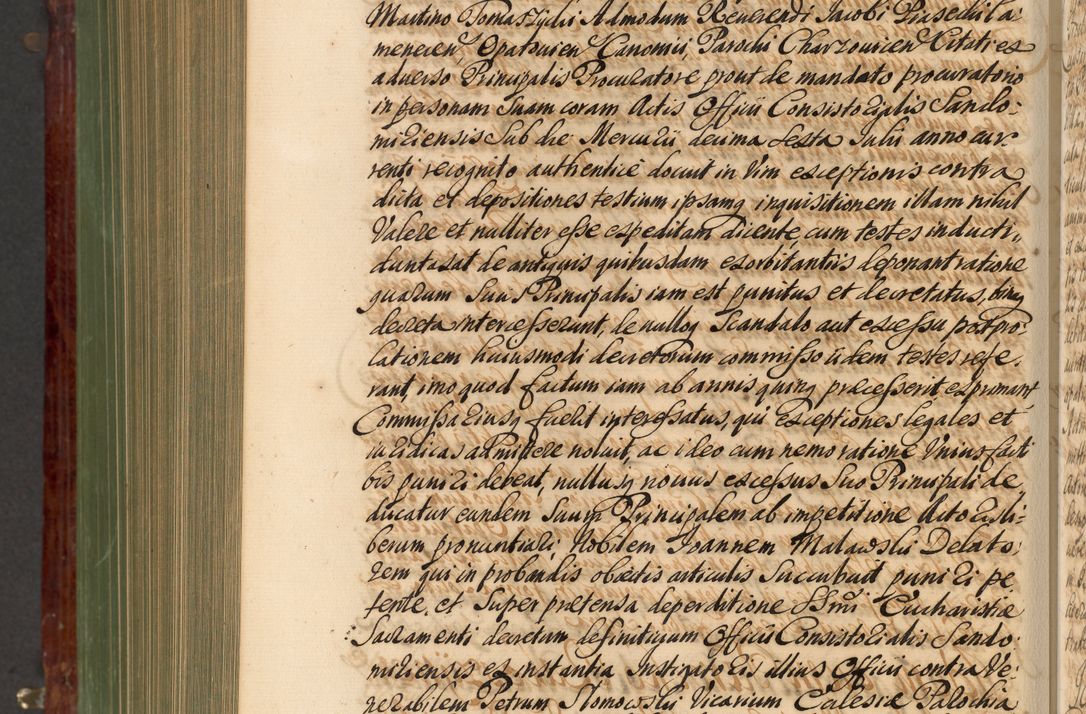 Martino Tomaszycki Admodum Reverendi Jacobi Piasecki Ca:
menecen, Opatovien Canonici, Parochi Charzovien Citati ex
adverso Principalis Procuratore prout de mandato procuratorio
in personam Suam coram Actis Officii Consistorialis Sando:
miriensis Sub die Mercurii decima Sexta Julii anno cur
renti recognito authentice docuit in Vim exceptionis contra
dicta et depositiones testium ipsamq inquisitionem illam nihil
Valere et nulliter esse expeditam dicente, cum testes inducti,
duntaxat de antiquis quibusdam exorbitantiis deponant ratione
quarum Suus Principalis iam est punitus et decretatus, binaq
decreta intercesserunt, de nulloq Scandalo aut excessu postpro
lationem huiusmodi decretorum commisso iidem testes refe
rant, imo quod factum iam ab annis quinq præcesserit exprimant
Commissariusq fuerit interessatus, qui Exceptiones legales et
iuridicas admittere noluit, ac ideo cum nemo ratione Unius facti
bis puniri debeat, nullusq novus excessus Suo Principali de
ducatur eundem Suum Principalem ab impetitione Actoris li:
berum pronuntiari, Nobilem Joannem Malawski Delato:
rem qui in probandis obiectis articulis Succubuit puniri pe
tente, et Super prætensa deperditione SSmi Eucharistiæ
Sacramenti decretum definitivum Officii Consistorialis Sando:
miriensis ex instantia Instigatoris illius Officii contra Ve:
nerabilem Petrum Slomowski Vicarium Ecclesiæ Parochia